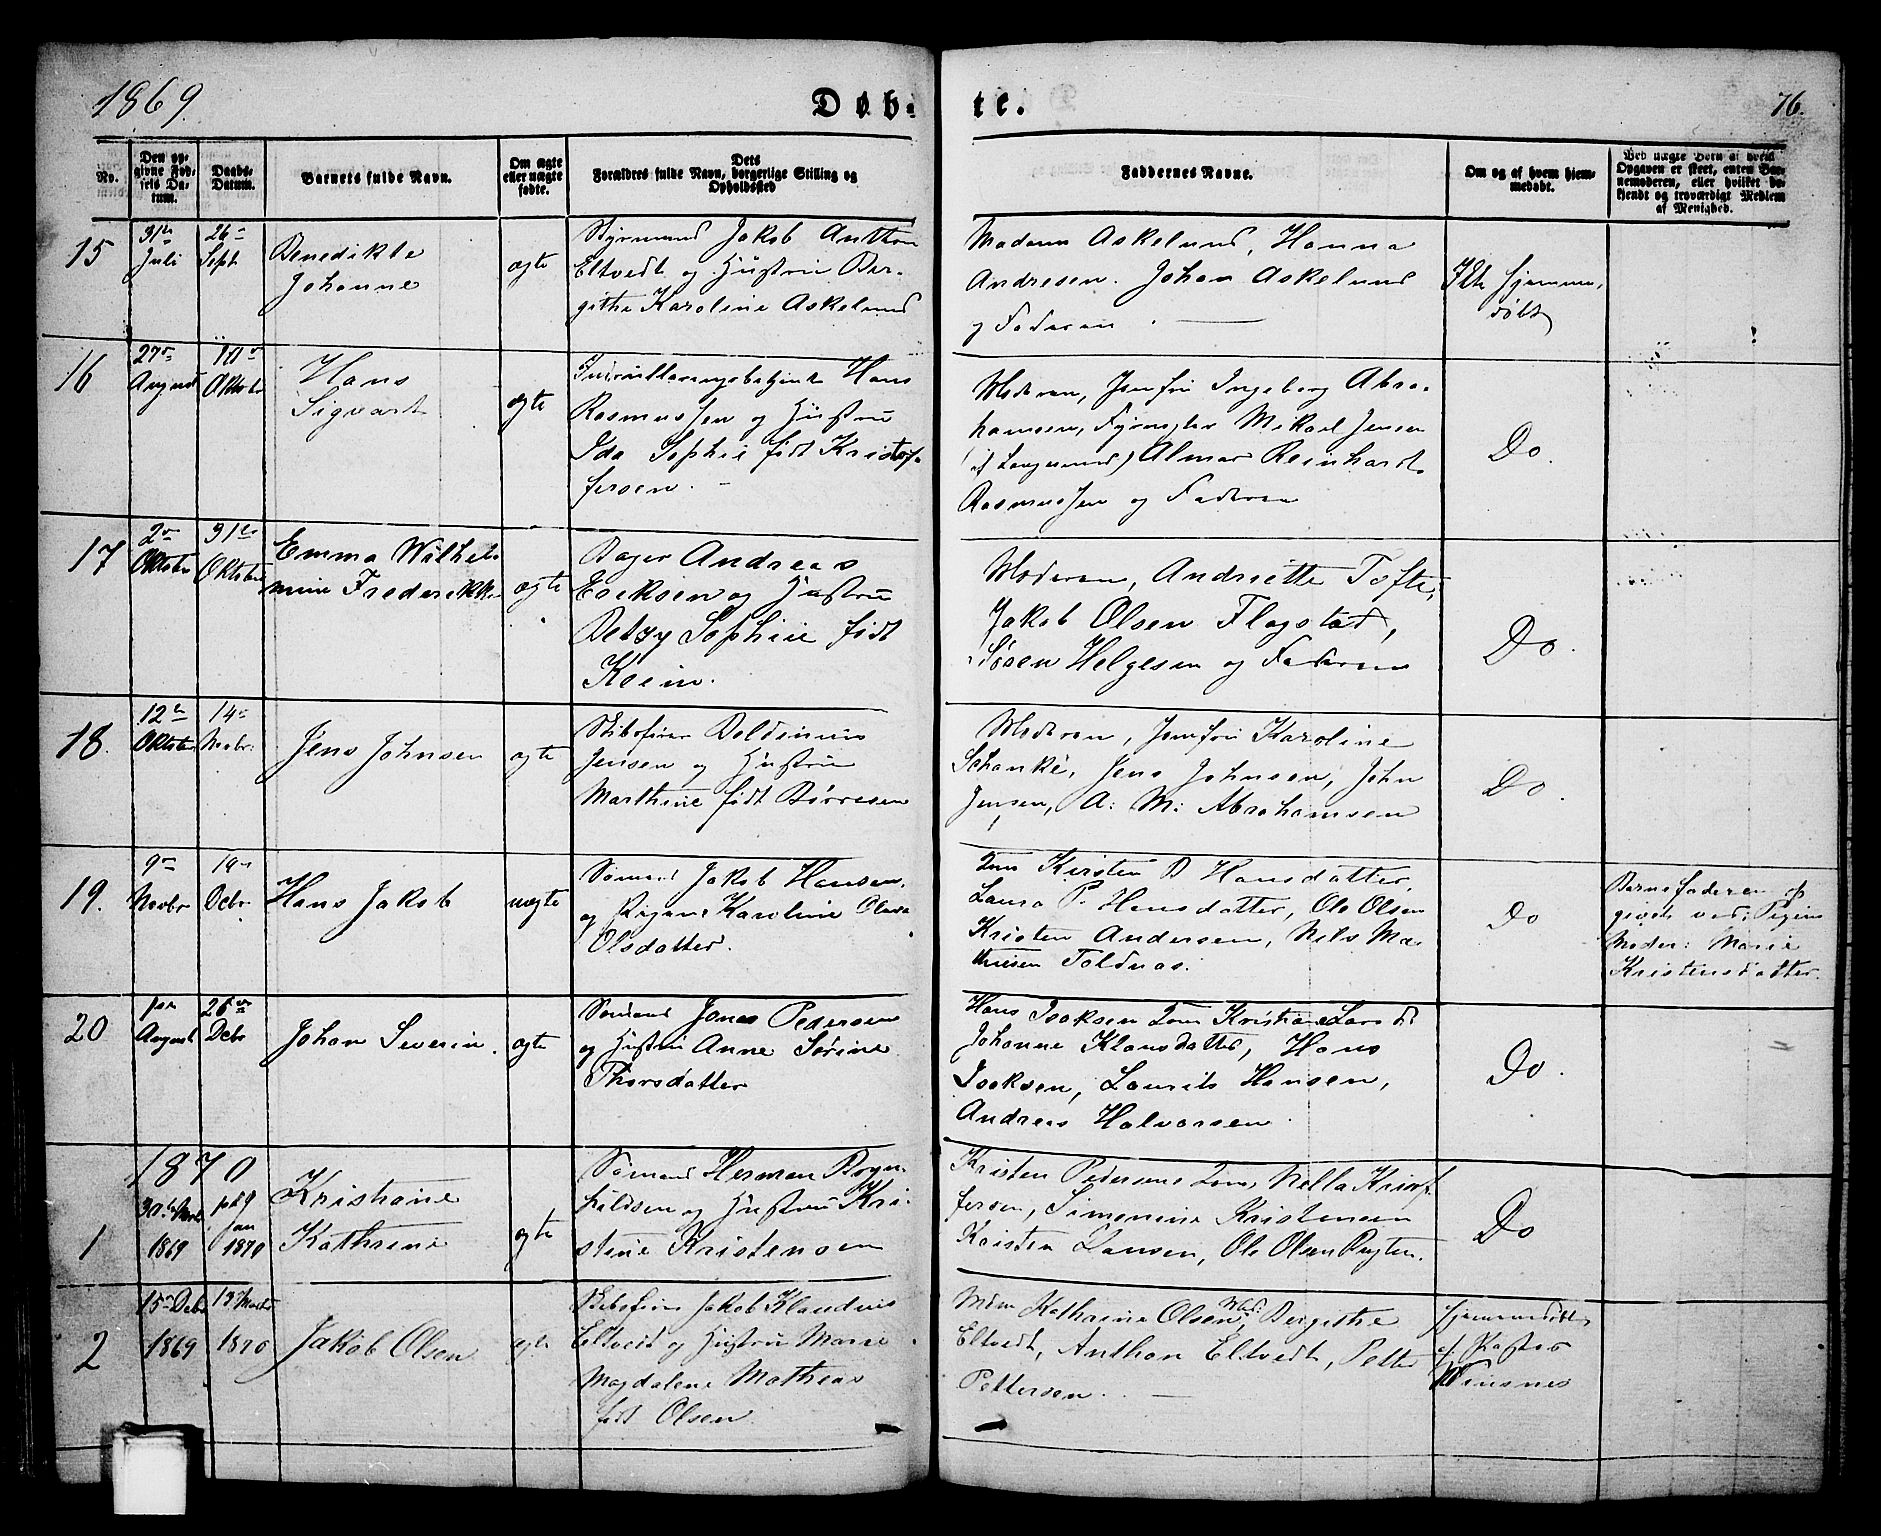 1869.
Døb-
te.
76.
No.
Den op-
givne Fød-
sels Da-
tum.
Daabs-
Datum.
Barnets fulde Navn.
Om ægte
eller uægte
fødte.
Dets
Forældres fulde Navn, borgerlige Stilling og
Opholdssted
Faddernes Navne.
Om og af hvem hjem-
medøbt.
Ved uægte Børn af hvem
Opgaven er skeet, enten Bar-
nemoderen, eller hvilket be-
kjendt og troværdigt Medlem
af Menighed.
15
31te
Juli
26
Sept
Benedikte
Johanne
ægte
Styrmand Jakob Anthon
Eltvedt og Hustru Ber-
githe Karoline Askelund
Madam Askelund, Hanna
Andresen. Johan Askelund
og Faderen
Ikke hjemme-
døbt
16
27
August
10
Oktober
Hans
Sigvart
ægte
Hans
Rasmussen og Hustru
Ida Sophie født Kristof-
fersen.
Moderen, Jomfru Ingeborg Abra-
hamsen, Mikael Jensen
Almar Reinhardt
Rasmussen og Faderen
Do.
17
2
Oktober
31te
Oktober
Emma Wilhel-
mine Frederikke
ægte
Bager Andreas
Eriksen og Hustru
Betzy Sophie født
Klein.
Moderen, Andriette Tofte,
Jakob Olsen Flagstad,
Søren Helgesen og Faderen
Do.
18.
12
Oktober
14
Novbr:
Jens Johnsen
ægte
Skibsfører Boldinius
Jensen og Hustru
Marthine født Børresen
Moderen, Jomfru Karoline
Schanke, Jens Johnsen, John
Jensen, A: M: Abrahamsen
Do.
19.
9
Novbr
19
Debr
Hans Jakob
uægte
Sømand Jakob Hansen
og Pigen Karoline Olava
Olsdatter.
Kirsten P Hansdatter,
Laura P. Hansdatter, Ole Olsen
Kristen Andersen, Nils Ma-
thiesen Toldnæs.
Do
Barnefaderen op
givet ved: Pigens
Moder: Marie
Kristensdatter.
20
1ste
August
26
Debr
Johan Severin.
ægte
Sømand Jonas Pedersen
og Hustru Anne Sørine
Thorsdatter
Hans Isaksen Kristiane Larsdt
Johanne Klausdatter, Hans
Isaksen, Laurits Hansen,
Andreas Halvorsen.
Do.
1870
1
30te Novbr
1869
9
Jan
1870
Kristiane
Kathrine
ægte
Sømand Herman Bryn-
hildsen og Hustru Kri-
stine Kristensen
Kristen Pedersens Nella Kristof-
fersen, Simonine Kristensen
Kristen Larsen, Ole Olsen
Do
2
15 Debr
1869
13 Marts
1870
Jakob Olsen
ægte
Skibsfører Jakob Klaudius
Eltvedt og Hustru Marie
Magdalene Mathea
født Olsen
Mdm Kathrine Olsen, Mad: Bergithe
Eltvedt, Anthon Eltvedt, Petter
Pettersen.
Hjemmedøbt
af Pastor
Winsnes